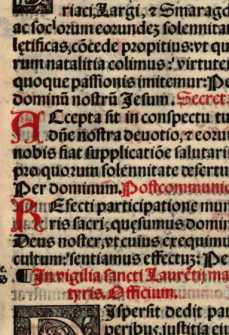 riaci, Largi, ⁊ Smaragd
ac socioꝝ eorundeʒ solennita
letificas, cōcede propitius: vt qu
rum natalitia colimus: virtutem
quoque passionis imitemur: Pe
dominū nostrū Jesum. Secreta
ACcepta sit in conspectu tu
dn̄e nostra deuotio, ⁊ eoru
nobis fiat supplicatiōe salutaris
pro quorum solennitate defertur
Per dominum. Postcommunio
REfecti participatione mune
ris sacri; quesumus domin
Deus noster, vt cuius exequimur
cultum: sentiamus effectuʒ: Pe
In vigilia sancti Laurētij ma
tyris. Officium.
DIspersit dedit pau
peribus, iustitia ei